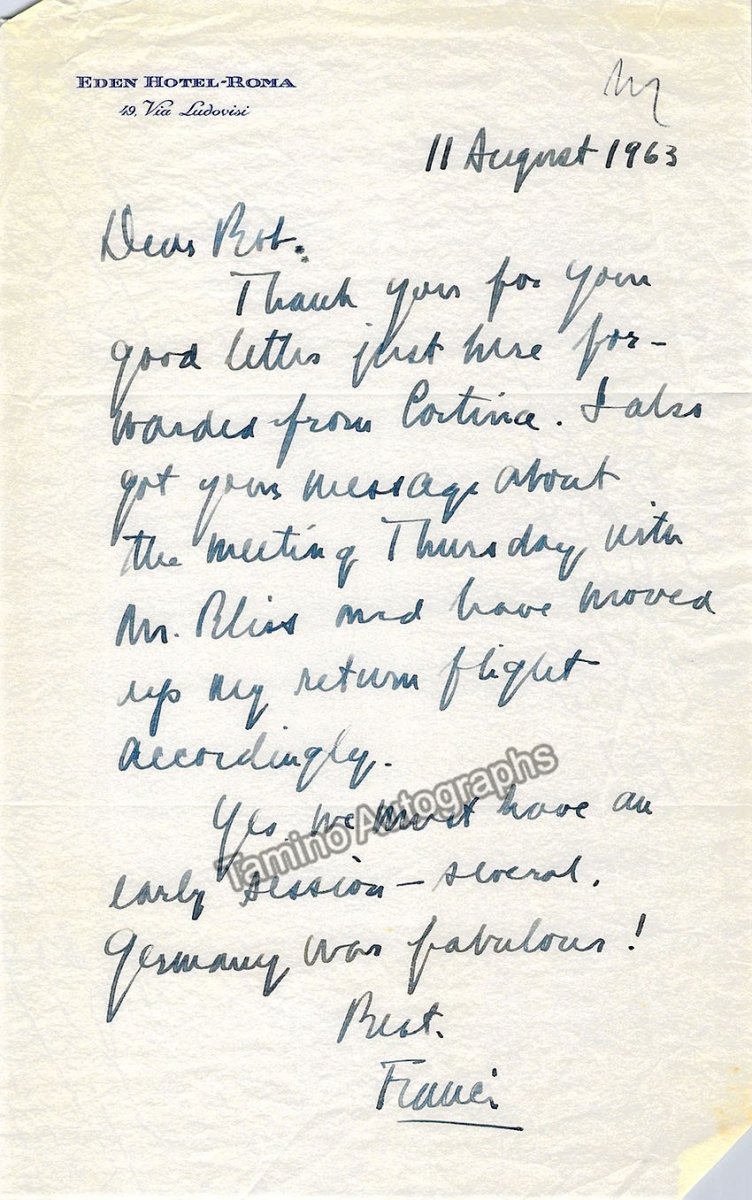 EDEN HOTEL-ROMA
49, Via Ludovisi
11 August 1963
Dear Bob.
Thank you for your
good letter just here for-
warded from Cortina. I also
got your message about
the meeting Thursday with
Mr. Bliss and have moved
up my return flight
accordingly.
Yes we must have an
early session – several.
Germany was fabulous!
Best.
Tamino Autographs